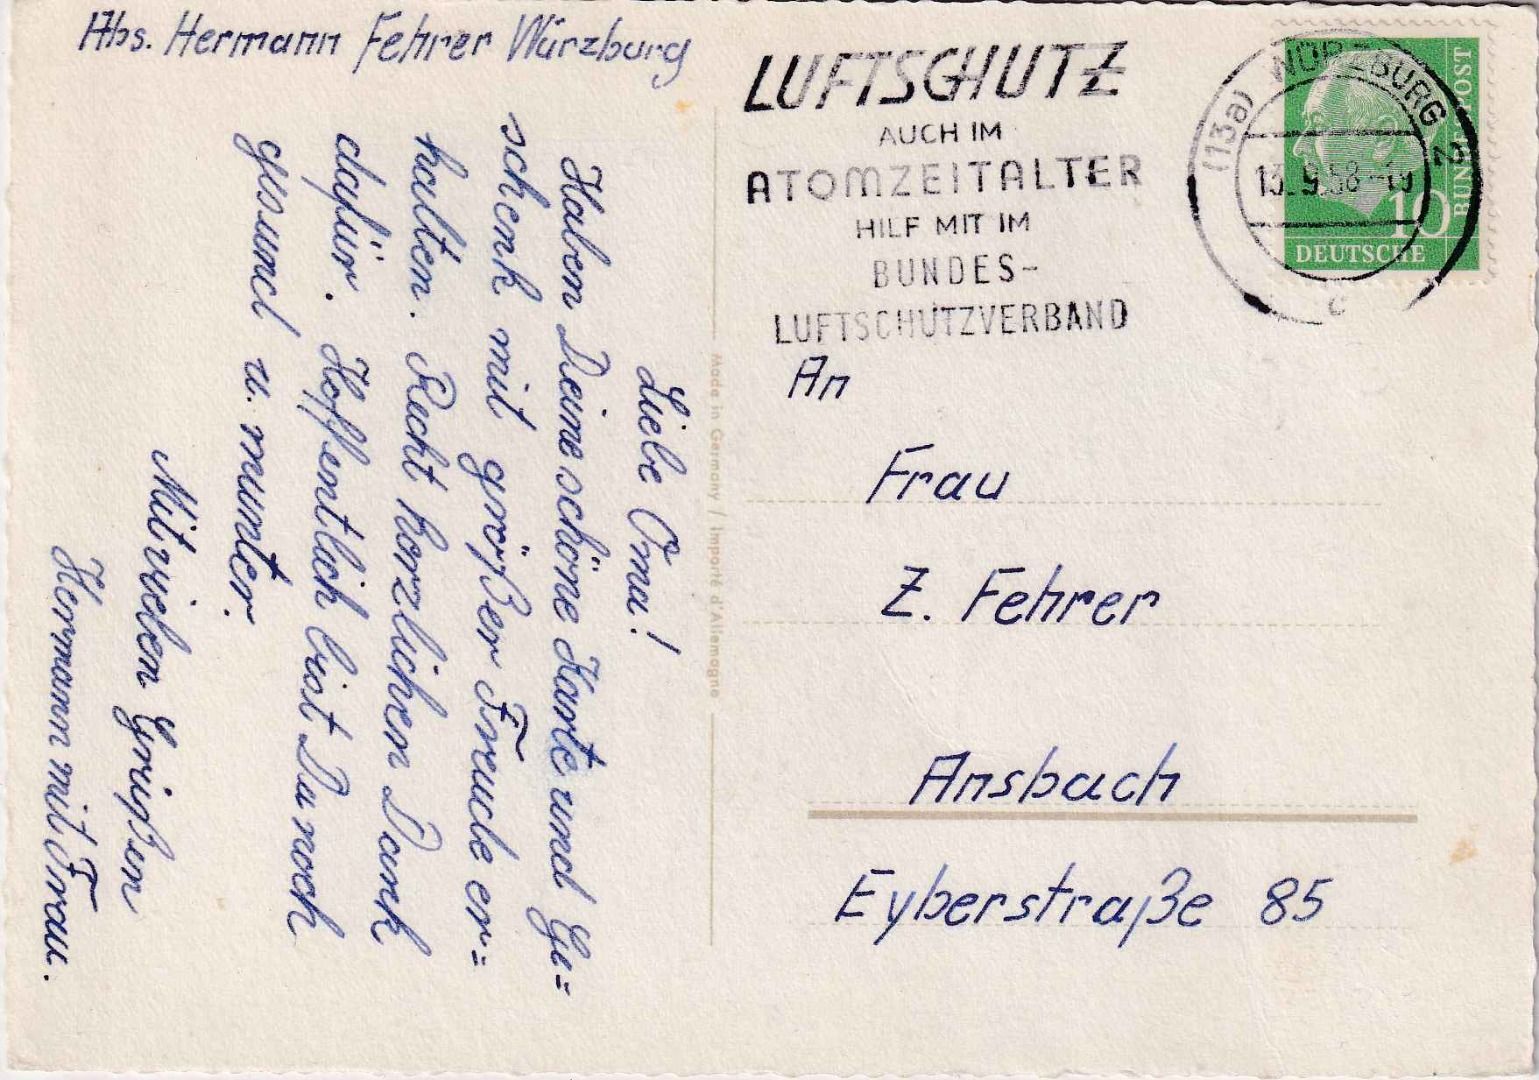 Abs. Hermann Fehrer Würzburg
Liebe Oma!
Haben Deine schöne Karte und Ge=
schenk mit größer Freude er=
halten. Recht herzlichen Dank
dafür. Hoffentlich bist Du noch
gesund u. munter.
Mit vielen Grüßen
Hermann mit Frau.
Made in Germany / Importé d'Allemagne
LUFTSCHUTZ
AUCH IM
ATOMZEITALTER
HILF MIT IM
BUNDES-
LUFTSCHUTZVERBAND
(13a) WÜRZBURG 2
13.9.58-19
c
10
DEUTSCHE
BUNDESPOST
An
Frau
Z. Fehrer
Ansbach
Eyberstraße 85